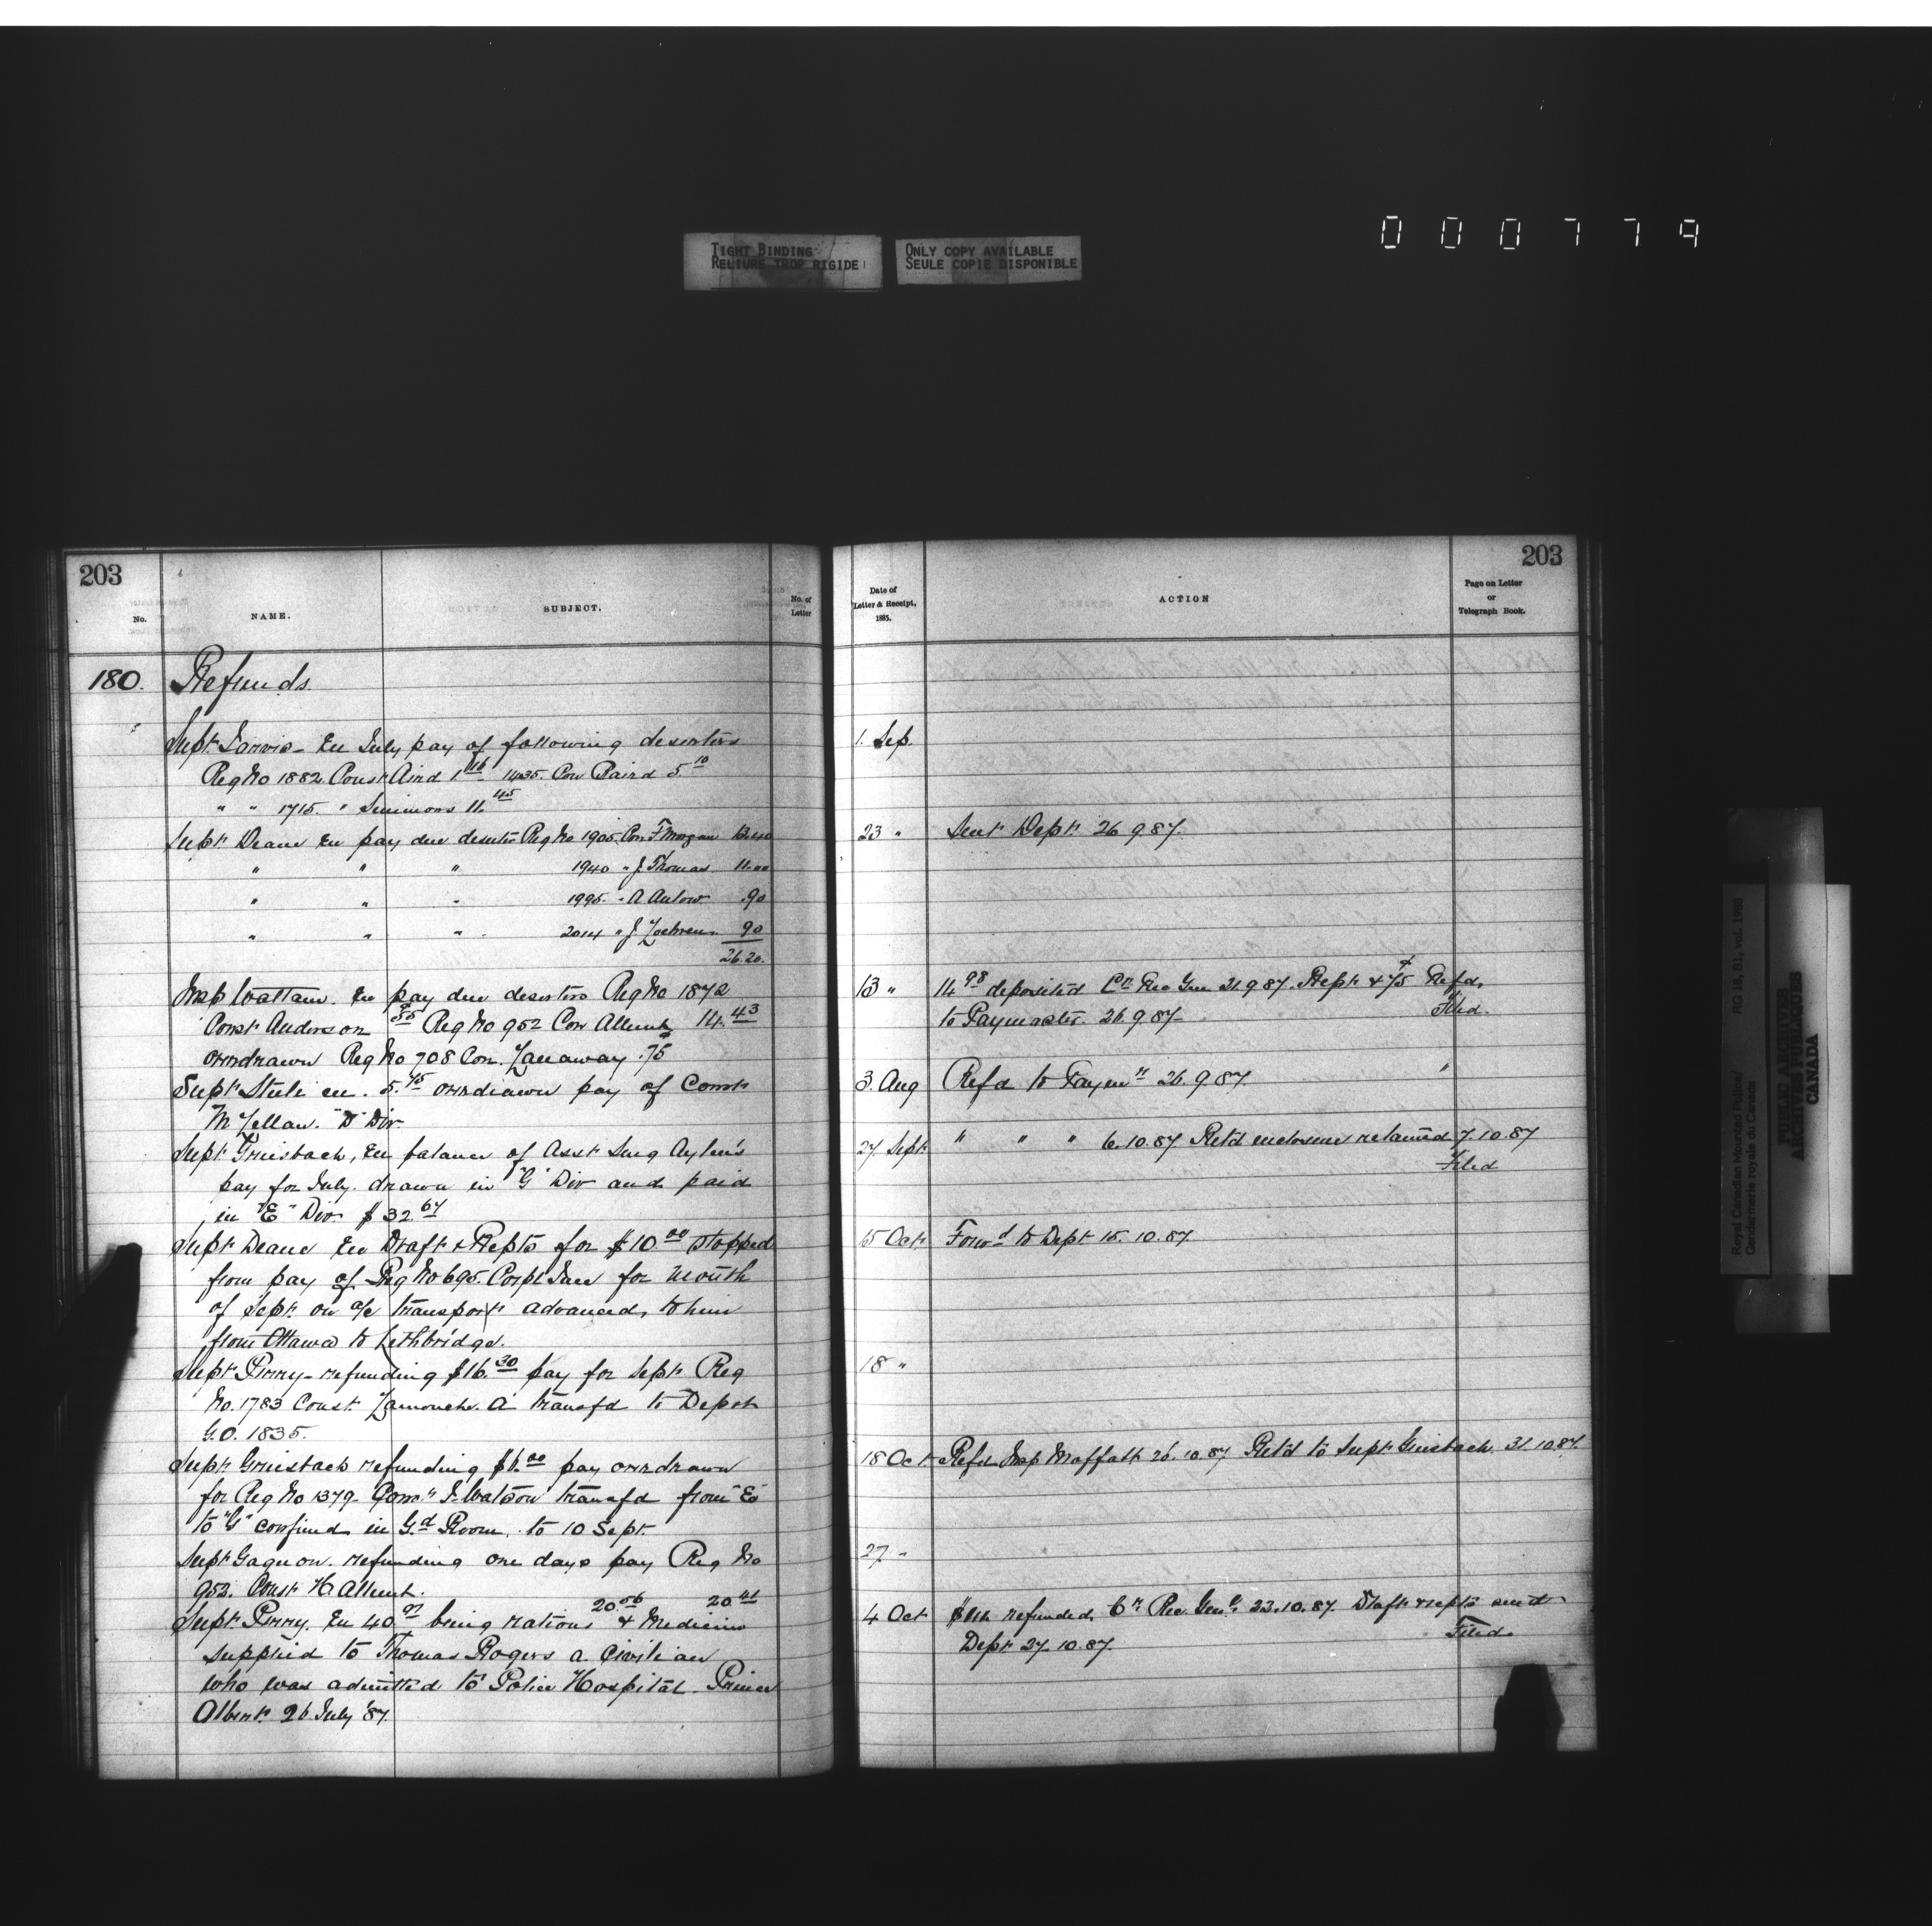 000779
TIGHT BINDING
RELIURE TROP RIGIDE
ONLY COPY AVAILABLE
SEULE COPIE DISPONIBLE
203
No.
NAME.
SUBJECT.
No. of Letter
180. Refunds.
Supt. Jarvis - En July pay of following deserters
Reg No 1882. Const Aird 1 16 1435. Con Baird 5 10
" " 1715. " Simmons 11. 45
Supt Deane En pay due deserter Reg No 1905. Con F Morgan 13.40
" " " 1940 " J. Thomas 11.00
" " " 1995. " A 90
" " " 2014 " J. 90
26.20.
Insp Wattam. En pay due deserters Reg No 1872
Const Anderson 55 Reg No 952 Con Allent 14. 43
overdrawn Reg No 708 Con. .75
Supt Steele en. 5. 75 overdrawn pay of Const
"D" Div
Supt Griesbach, En balance of Asst Surg Aylen's
pay for July. drawn in "G" Div and paid
in "E" Div $32. 67
Supt Deane En Draft & Repts for $10 00 stopped
from pay of Reg No 695. Corpl for month
of Sept. on a/c transport advanced, to him
from Ottawa to Lethbridge.
Supt Perry - refunding $16. 30 pay for Sept Reg
No. 1783 Const. Lamouche. A transfd to Depot
G.O. 1835.
Supt Griesbach refunding $6. 00 pay overdrawn
for Reg No 1379 - Watson transfd from "E"
to "G" confined in Gd Room. to 10 Sept.
Supt Gagnon. refunding one days pay Reg No
952. Const H. Allent.
Supt. Perry. En 40 97 being rations 20 56 & Medicine 20 41
supplied to Thomas Rogers a Civilian
who was admitted to Police Hospital. Prince
Albert. 26 July '87.
203
Date of Letter & Receipt, 1885.
ACTION
Page on Letter or Telegraph Book.
1. Sep.
23 " Sent Dept 26 9 87.
13 " 14 98 deposited Cr Rec Gen 21.9.87. Rept & 75 Refd,
to Paymaster. 26.9.87 Filed.
3. Aug Refd to Paymr 26.9.87. "
27 Sept " " " 6.10.87 Retd enclosure retained 7.10.87
Filed
15 Oct Forwd to Dept 15.10.87
18 "
18 Oct Refd Insp Moffatt 26.10.87 Retd to Supt Griesbach. 31.10.87.
27. "
4 Oct refunded Cr Rec. Genl. 22.10.87. Draft & repts sent
Dept 27.10.87. Filed.
Royal Canadian Mounted Police/
Gendarmerie royale du Canada
RG 18, B1, vol. 1988
PUBLIC ARCHIVES
ARCHIVES PUBLIQUES
CANADA